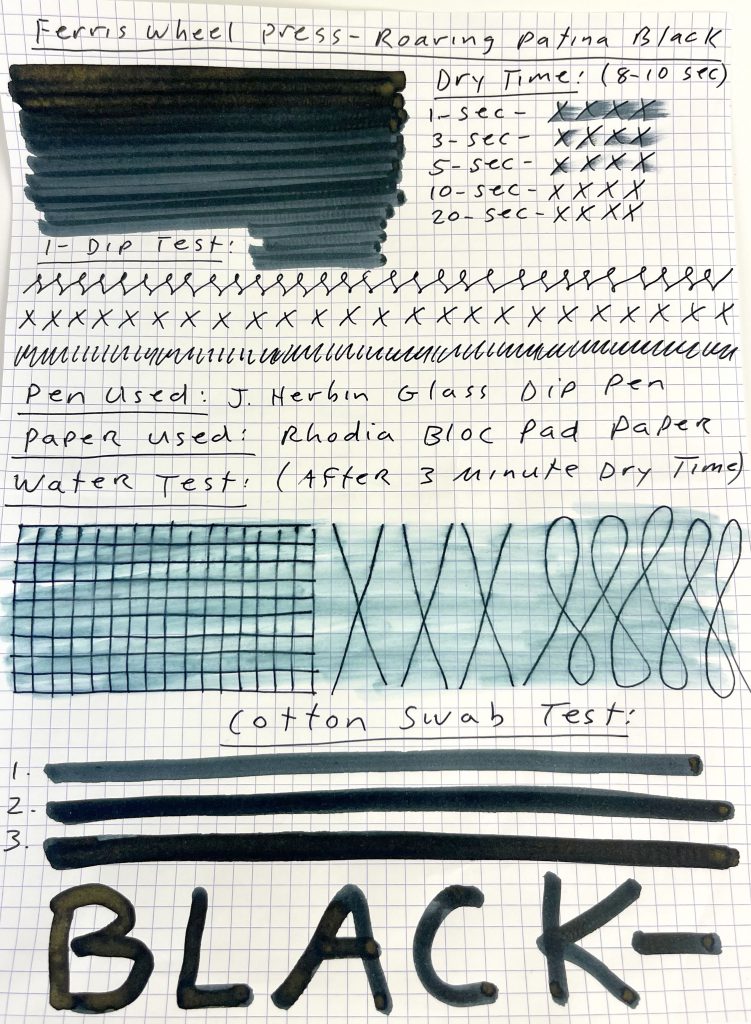 Ferris Wheel Press- Roaring Patina Black
Dry Time: (8-10 sec)
1-sec- X X X X
3-sec- X X X X
5-sec- X X X X
10-sec- X X X X
20-sec- X X X X
1- Dip Test:
X X X X X X X X X X X X X X X X X X X X X X X X
Pen Used: J. Herbin Glass Dip Pen
Paper Used: Rhodia Bloc Pad Paper
Water Test: (After 3 Minute Dry Time)
Cotton Swab Test:
1.
2.
3.
BLACK-